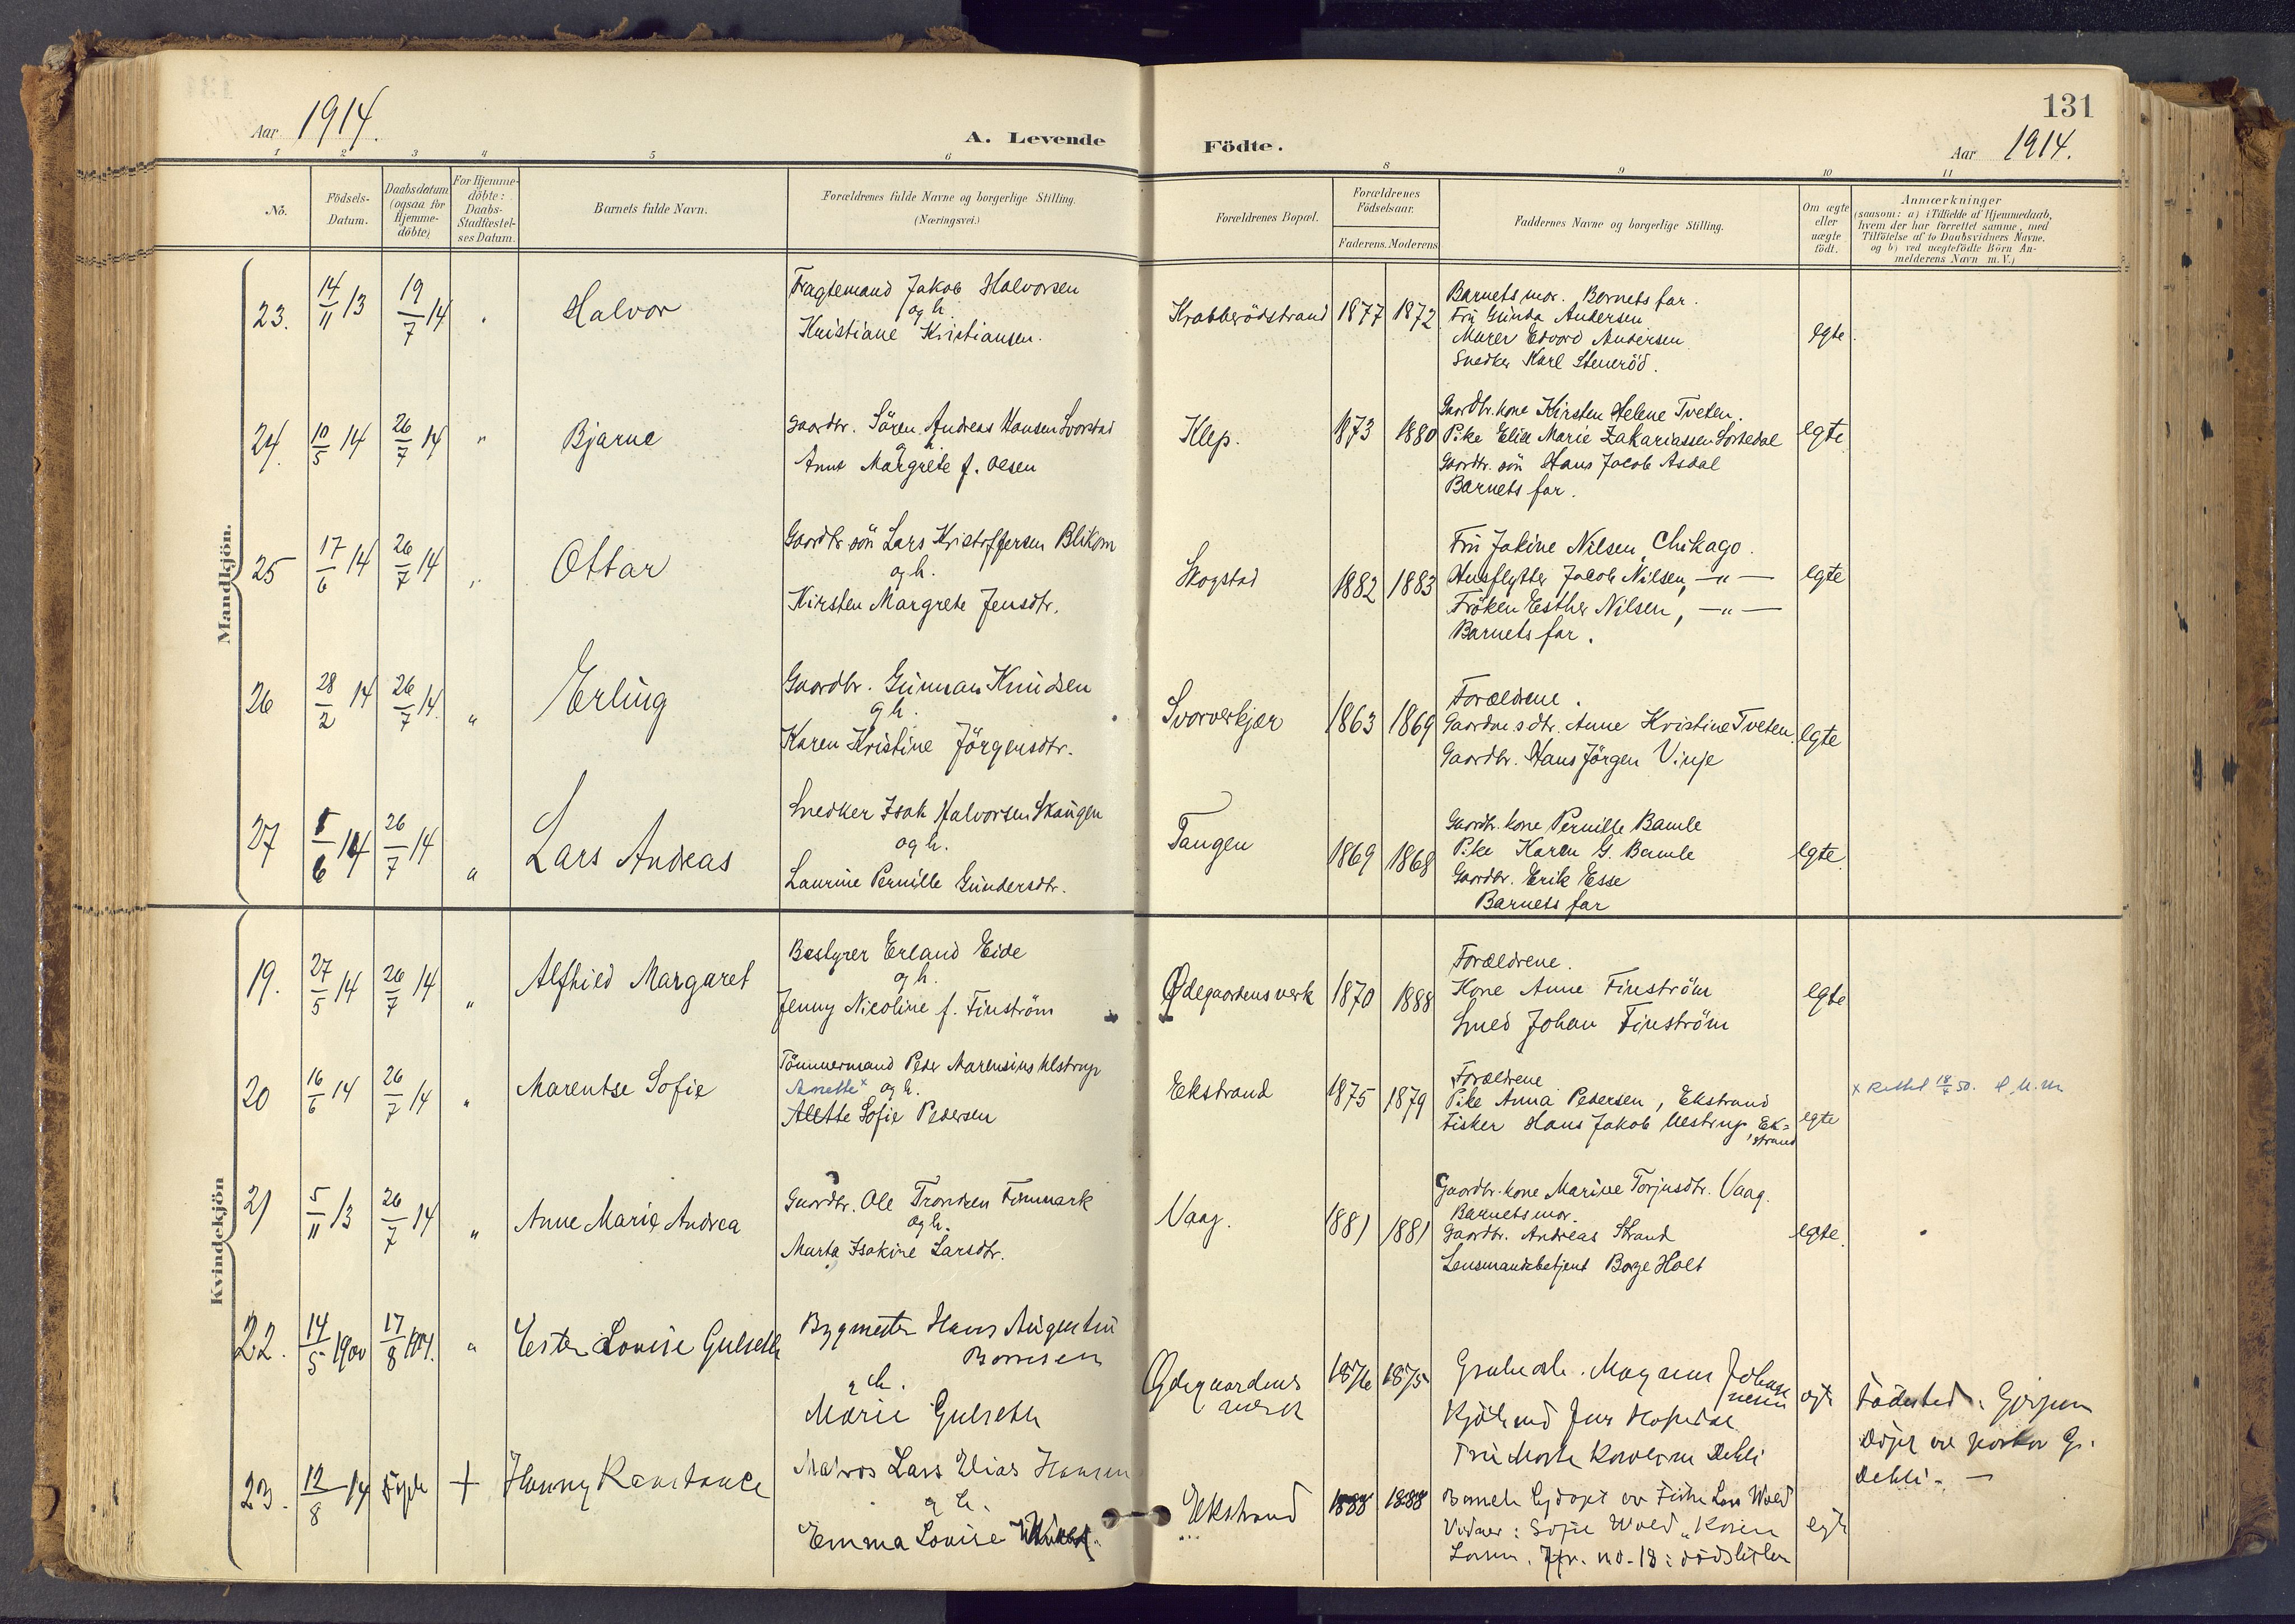 131
Aar 1914.
A. Levende
Födte.
Aar 1914.
1 2 3 4 5 6 8 9 10 11
No.
Födsels-
Datum.
Daabsdatum
(ogsaa for
Hjemme-
döbte)
For Hjemme-
döbte:
Daabs-
Stadfæstel-
ses Datum.
Barnets fulde Navn.
Forældrenes fulde Navne og borgerlige Stilling.
(Næringsvei.)
Forældrenes Bopæl.
Forældrenes
Födselsaar.
Faderens. Moderens
Faddernes Navne og borgerlige Stilling.
Om ægte
eller
uægte
födt.
Anmærkninger
(saasom: a) i Tilfælde af Hjemmedaab,
hvem der har forrettet samme, med
Tilföielse af to Daabsvidners Navne,
og b) ved uægtefödte Börn An-
melderens Navn m. V.)
Mandkjön.
23.
14/11 13
19/7 14
Halvor
Fragtemand Jakob Halvorsen
og h.
Kristiane Kristiansen.
Krabberödstrand
1877
1872
Barnets mor. Barnets far.
Fru Gunda Andersen
Murer Edvard Andersen
Snedker Karl Steneröd.
egte
24.
10/5 14
26/7 14
"
Bjarne
Gaardbr. Sören Andreas Hansen Svorstad
og h.
Anne Margrete f. Olsen
Klep.
1873
1880
Gaardbr. kone Kirsten Helene Tveten.
Pike Elise Marie Zakariassen
Gaardbr. sön Hans Jacob Asdal
Barnets far.
egte
25
17/6 14
26/7 14
"
Ottar
Gaardbr. sön Lars Kristoffersen Blikom
og h.
Kirsten Margrete Jensdtr.
Skogstad
1882
1883
Fru Jakine Nilsen, Chikago.
Husflytter Jacob Nilsen, —"—
Fröken Esther Nilsen, —"—
Barnets far.
egte
26
28/2 14
26/7 14.
"
Erling
Gaardbr. Gunnar Knudsen
og h.
Karen Kristine Jörgensdtr.
Svorverkjær
1863
1869
Forældrene.
Gaardm.sdtr. Anne Kristine Tveten.
Gaardbr. Hans Jörgen Vinje
egte
27
6 14
26/7 14
"
Lars Andreas
Snedker Isak Halvorsen Skaugen
og h.
Laurine Pernille Gundersdtr.
Tangen
1869
1868
Gaardbr. kone Pernille Bamle
Pike Karen G. Bamle
Gaardbr. Erik Esse
Barnets far
egte
Kvindekjön
19.
27/5 14
26/7 14
"
Alfhild Margaret
Bestyrer Erland Eide
og h.
Jenny Nicoline f. Finström
Ødegaardens verk
1870
1888
Forældrene.
Kone Anne Finström
Smed Johan Finström
egte
20
16/6 14
26/7 14
"
Marentse Sofie
Tömmermand Peder Marensius Ulstrup
Anette x og h.
Alette Sofie Pedersen
Ekstrand
1875
1879
Forældrene
Pike Anna Pedersen, Ekstrand
Fisker Hans Jakob Ulstrup Ek=
strand
egte
x Rettet 18/7 50.
21
5/11 13
26/7 14
"
Anne Marie Andrea
Gaardbr. Ole Trondsen Finmark
og h.
Marta Isakine Larsdtr.
Vaag.
1881
1881
Gaardbr. kone Marine Torjusdtr. Vaag.
Barnets mor.
Gaardbr. Andreas Strand
Lensmandsbetjent Borge Holt
egte.
22.
14/5 1900
17/8 1914.
"
Ester Louise Gulseth
Bygmester Hans Augustin
Bonnesen
og h.
Marie Gulseth
Ødegaardens
værk
1876
1875
Grubearb. Magnus Johan
nesen
Kjöbmd Jens
Fru Marte Karoline Dehli
egte
Födested: Gjerpen
Döpt av pastor G.
Dehli. —
23.
12/8 14
+
Hanny Konstance
Matros Lars Elias Hansen
og h.
Emma Louise
Ekstrand
1888
1888
Barnet hjdöpt av Fisker Lars Wold
Vidner: Sofie Wold, Karen
Larsen. Jfr. no. 18: dödslisten
egte